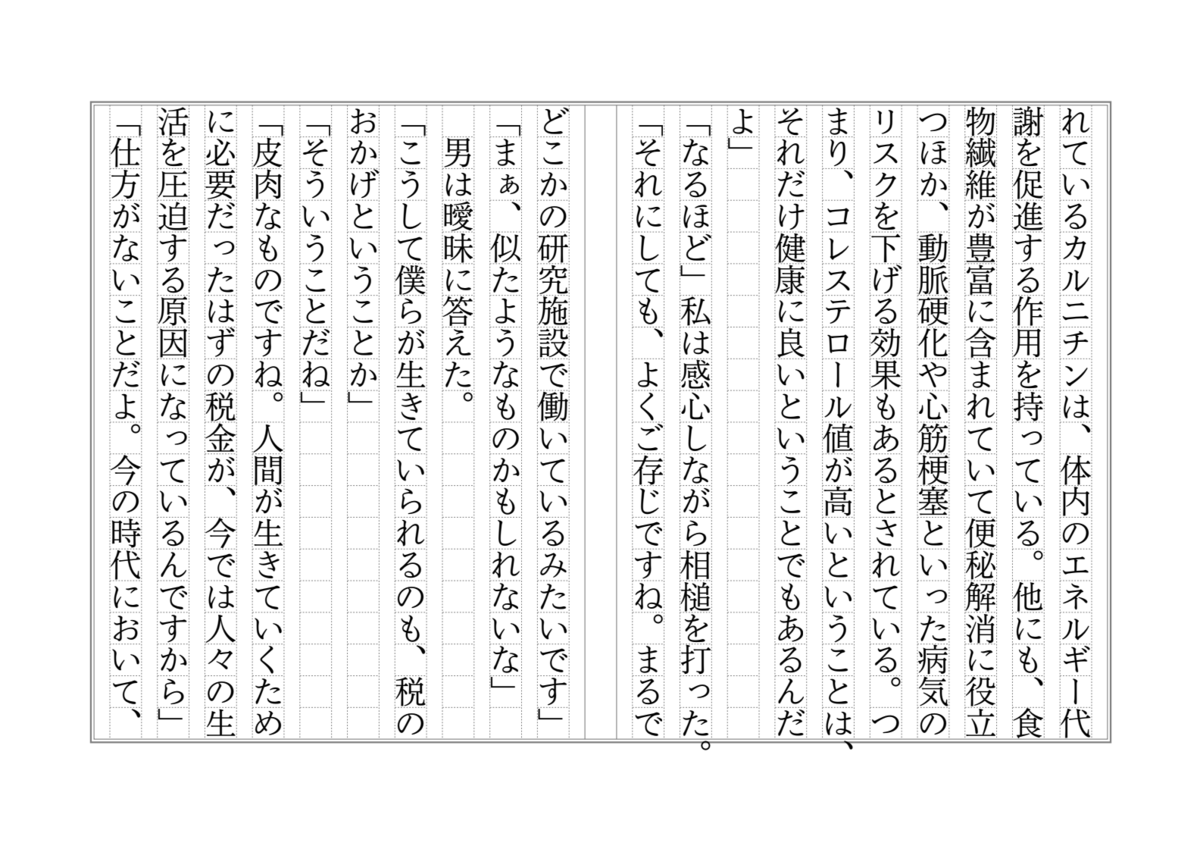 れているカルニチンは、体内のエネルギー代
謝を促進する作用を持っている。他にも、食
物繊維が豊富に含まれていて便秘解消に役立
つほか、動脈硬化や心筋梗塞といった病気の
リスクを下げる効果もあるとされている。つ
まり、コレステロール値が高いということは、
それだけ健康に良いということでもあるんだ
よ」
「なるほど」私は感心しながら相槌を打った。
「それにしても、よくご存じですね。まるで
どこかの研究施設で働いているみたいです」
「まぁ、似たようなものかもしれないな」
　男は曖昧に答えた。
「こうして僕らが生きていられるのも、税の
おかげということか」
「そういうことだね」
「皮肉なものですね。人間が生きていくため
に必要だったはずの税金が、今では人々の生
活を圧迫する原因になっているんですから」
「仕方がないことだよ。今の時代において、